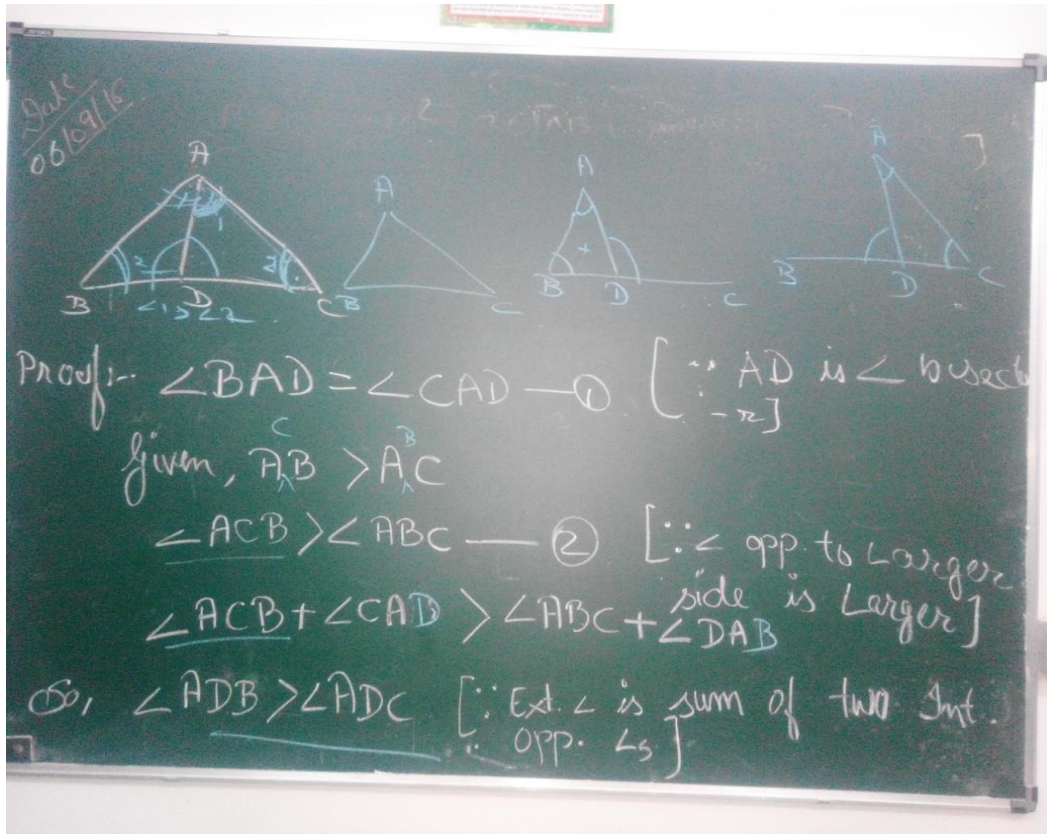 Date
06/09/16
A
B
D
C
1
2
2
∠1>∠2
A
B
C
A
B
D
C
A
B
D
C
Proof:- ∠BAD = ∠CAD — ① [∵ AD is ∠ bisect
-r]
C B
Given, AB > AC
∠ACB > ∠ABC — ② [∵ ∠ opp. to Larger
side is Larger]
∠ACB + ∠CAD > ∠ABC + ∠DAB
So, ∠ADB > ∠ADC [∵ Ext. ∠ is sum of two Int.
opp. ∠s]